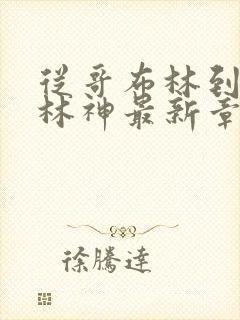 从哥布林到
林神最新章
徐騰達